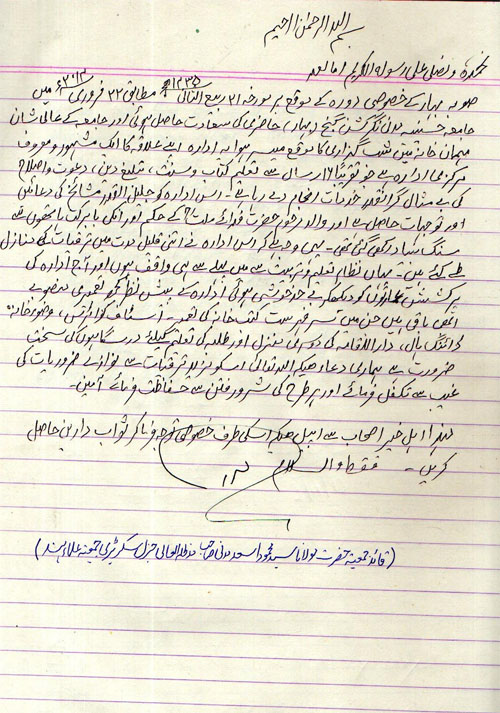 بسم اللہ الرحمٰن الرحیم
نحمدہ و نصلی علی رسولہ الکریم اما بعد
صوبہ بہار کے خصوصی دورہ کے موقع پر مورخہ ۲۱ ربیع الثانی ۱۴۳۵ھ مطابق ۲۲ فروری میں
جامعہ حسینیہ مدنی نگر کشن گنج (بہار) حاضری کی سعادت حاصل ہوئی اور جامعہ کے عالی شان
مہمان خانہ میں شب گزاری کا موقع میسر ہوا یہ ادارہ اپنے علاقہ کا ایک مشہور و معروف
مرکزی ادارہ ہے جو تقریباً ۱۶ سال سے تعلیم کتاب و سنت، تبلیغ دین، دعوت و اصلاح
کی بے مثال گرانقدر خدمات انجام دے رہا ہے۔ اس ادارہ کو جلیل القدر مشائخ کی دعائیں
اور توجہات حاصل ہے اور والد مرحوم حضرت فدائے ملتؒ کے حکم اور انکی بابرکت ہاتھوں سے
سنگ بنیاد رکھی گئی تھی۔ یہی وجہ ہے کہ اس ادارہ نے اتنی قلیل مدت میں ترقیات کی منازل
طے کئے ہیں۔ یہاں نظام تعلیم و تربیت سے میں پہلے سے ہی واقف ہوں اور آج ادارہ کی
پرکشش عمارتوں کو دیکھ کر بے حد خوشی ہوئی ادارہ کے پیش نظر کچھ تعمیری منصوبے
ابھی باقی ہیں جن میں سر فہرست کتب خانہ کی تعمیر، اسٹاف کوارٹرس، وضو خانہ
ڈائننگ ہال، دار الاقامہ کی دوسری منزل اور طلبہ کی تعلیم کیلئے درسگاہوں کی سخت
ضرورت ہے ہماری دعاء ہیکہ اللہ تعالیٰ اسکو مزید ترقیات سے نوازے ضروریات کی
غیب سے تکفل فرمائے اور ہر طرح کی شرور فتن سے حفاظت فرمائے آمین۔
لہٰذا اہل خیر اصحاب سے اپیل ہیکہ اسکی طرف خصوصی توجہ فرما کر ثواب دارین حاصل
کریں۔ فقط والسلام
(قائد جمعیۃ حضرت مولانا سید محمود اسعد مدنی صاحب مدظلہ العالی جنرل سکریٹری جمعیۃ علماء ہند)